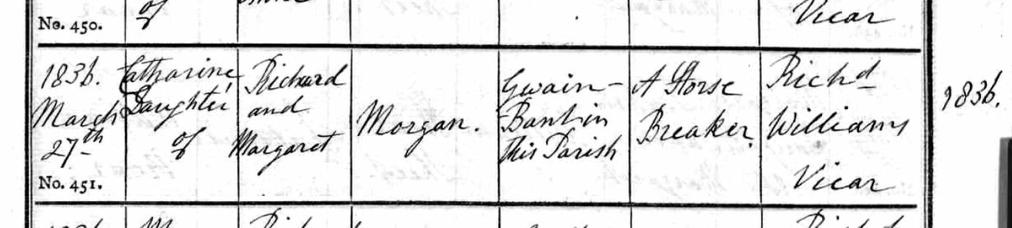 No. 450.
of
Vicar
1836.
March
27th
No. 451.
Catharine
Daughter
of
Richard
and
Margaret
Morgan.
Gwain-
Bantin
this Parish
A Horse
Breaker.
Richd
Williams
Vicar
1836.